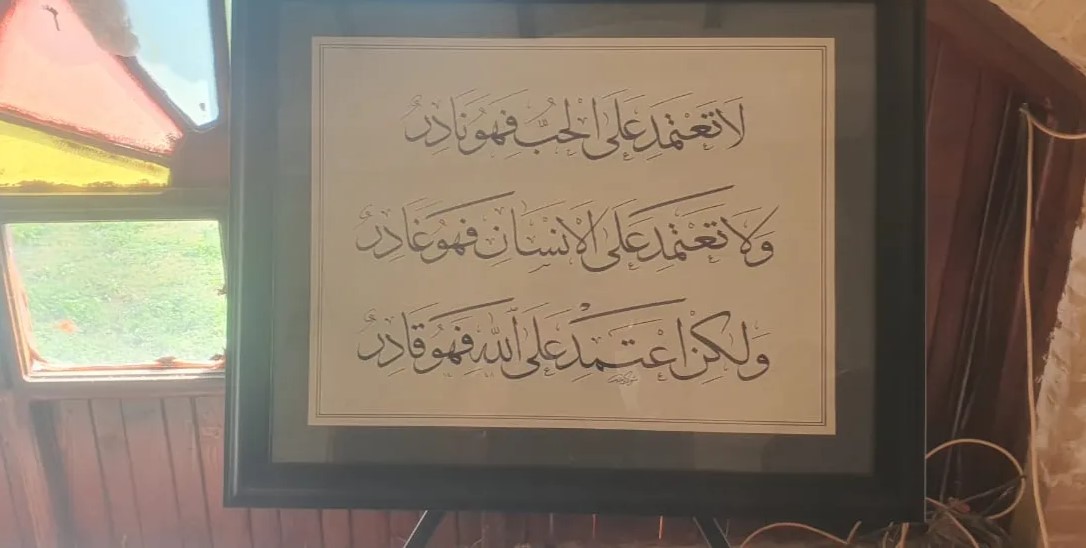 لَا تَعْتَمِدْ عَلَى الْحُبِّ فَهُوَ نَادِرٌ
وَلَا تَعْتَمِدْ عَلَى الْاِنْسَانِ فَهُوَ غَادِرٌ
وَلٰكِنْ اعْتَمِدْ عَلَى اللّٰهِ فَهُوَ قَادِرٌ